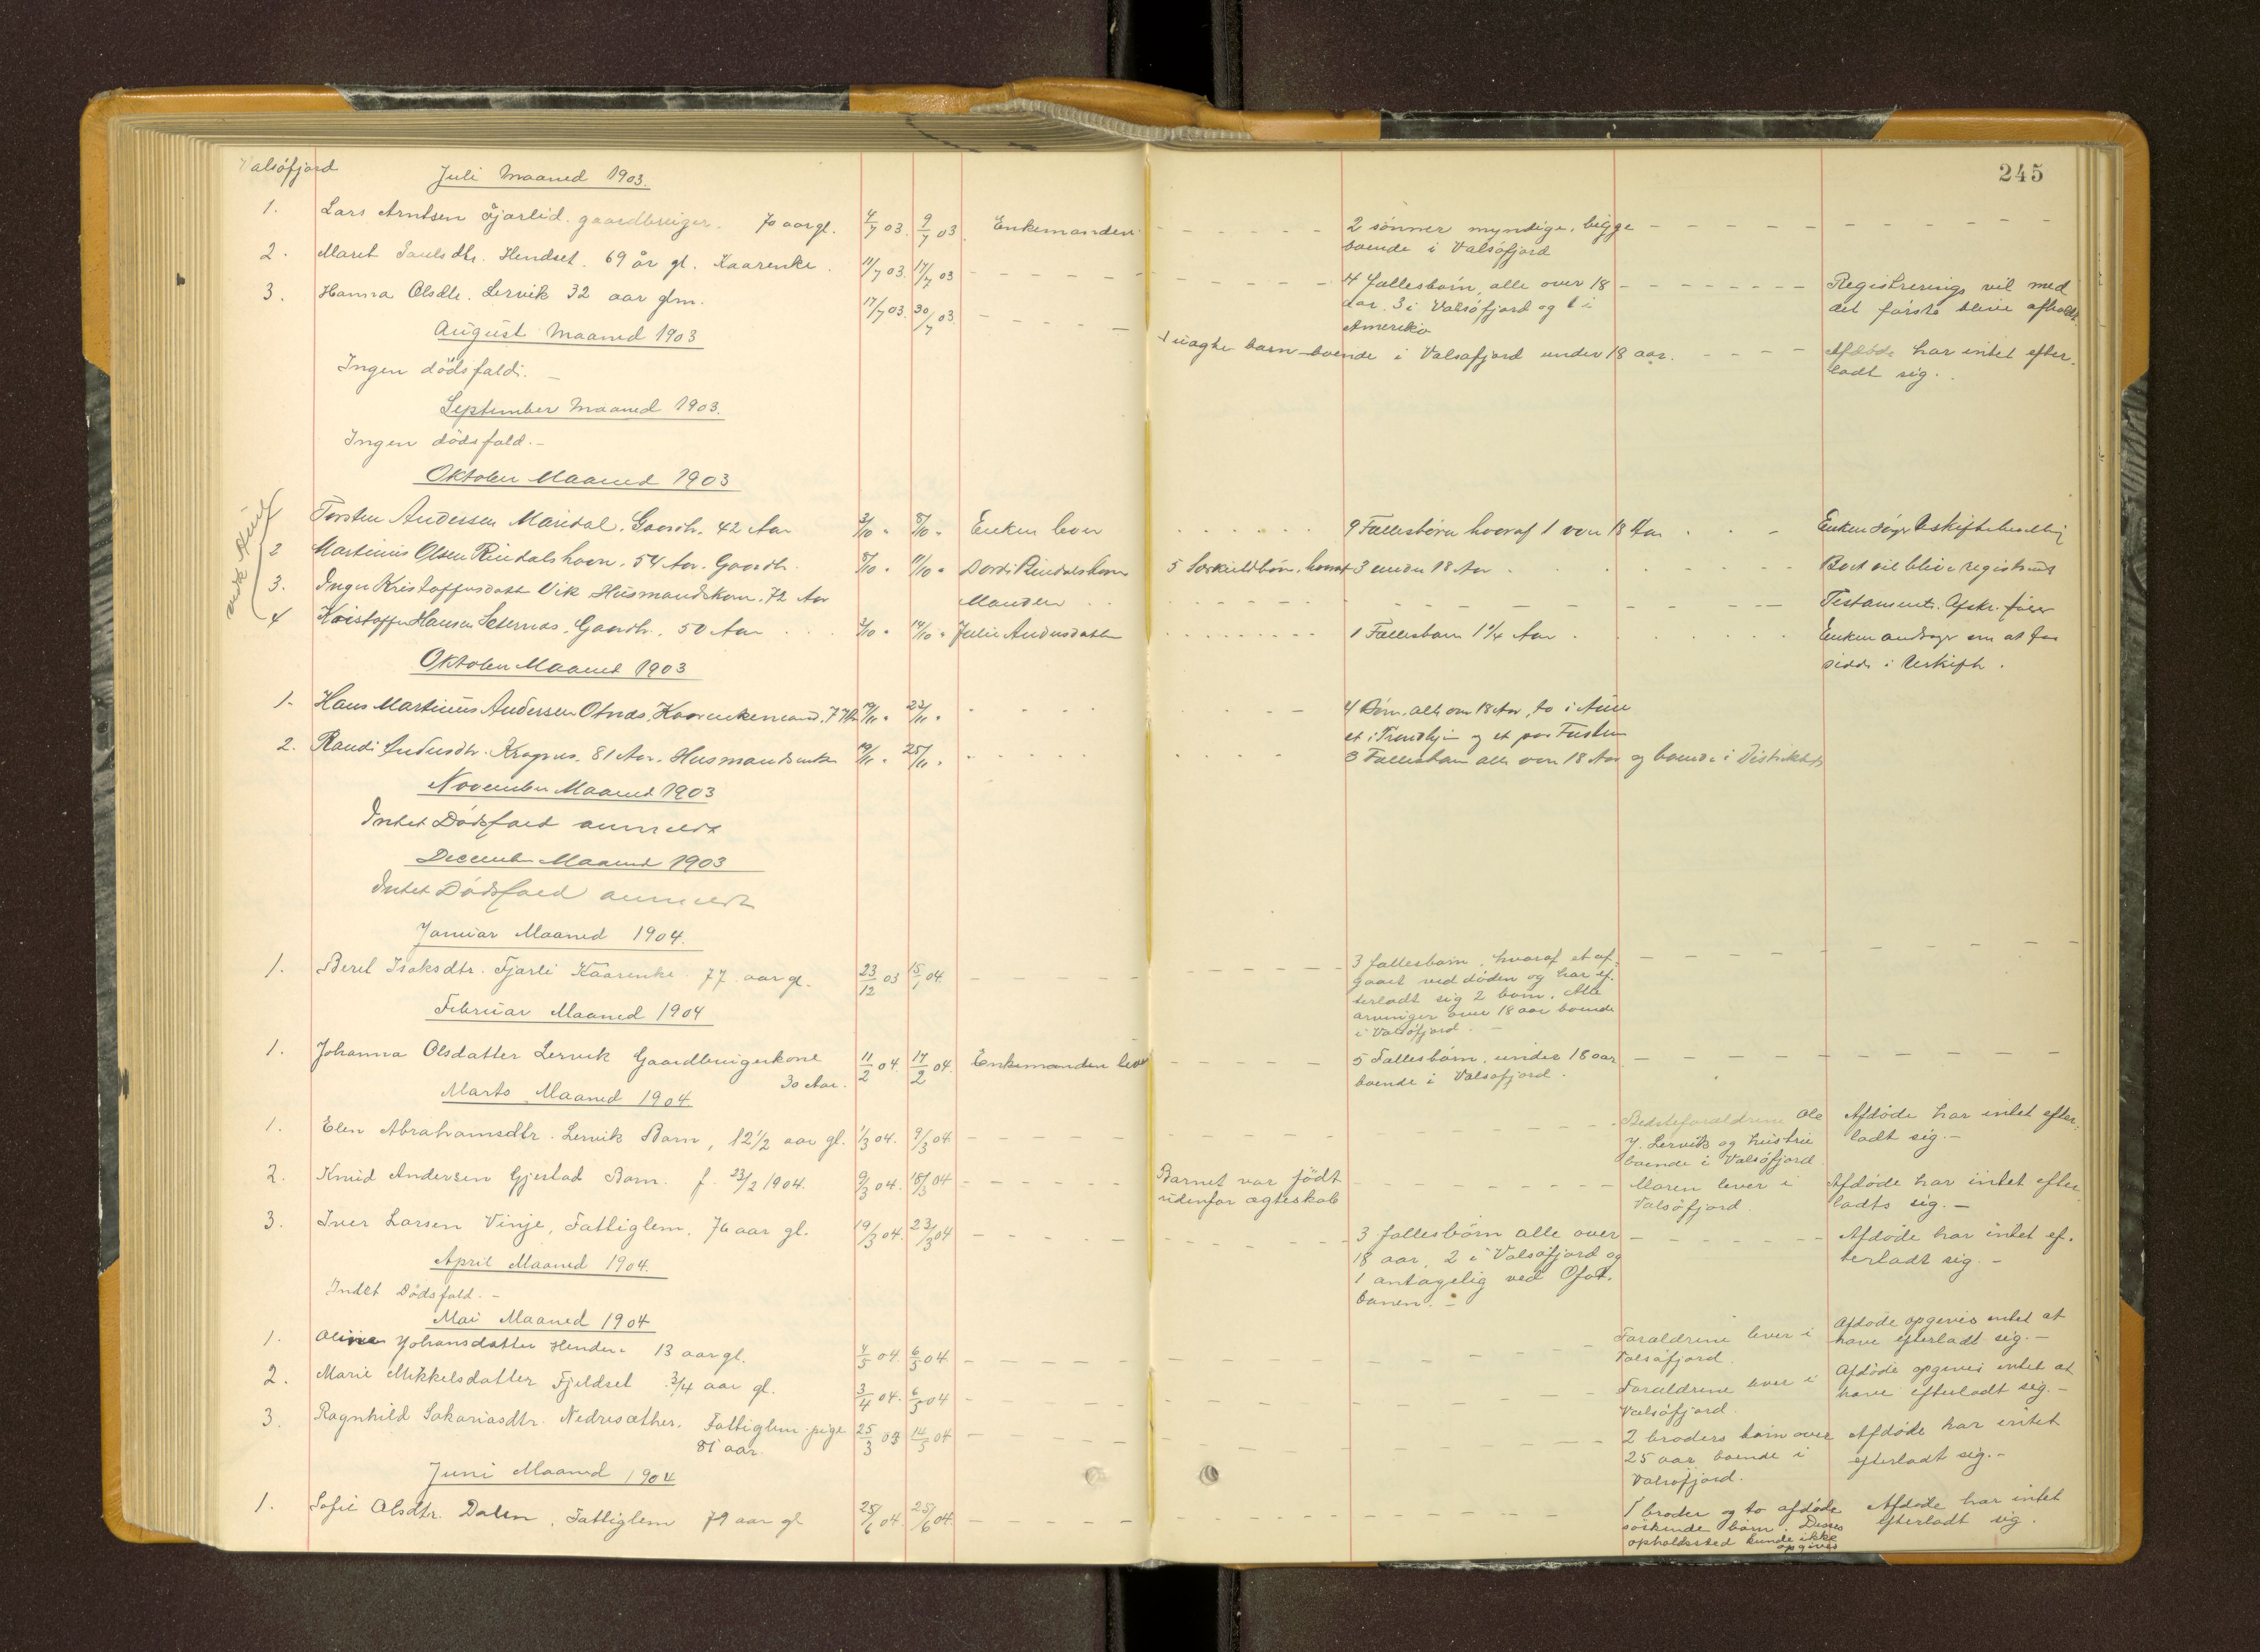 245
Valsöfjord
Juli Maaned 1903.
1. Lars Arntsen Fjærlid. gaardbruiger. 70 aar gl. 4/7 03. 9/7 03. Enkemanden - - - - 2 sönner myndige, begge - - - -
boende i Valsöfjord
2. Marit Paulsdtr. Hendset. 69 år gl. Kaarenke. 11/7 03. 17/7 03 - - - - 4 fællesbörn, alle over 18 - - - - Registrerings vil med
aar. 3 i Valsöfjord og 1 i det förste blive afholdt.
Amerika
3. Hanna Olsdtr. Lervik 32 aar glm. 17/7 03. 30/7 03. - - - - 1 uægte barn boende i Valsöfjord under 18 aar. - - - - Afdöde har intet efter-
ladt sig.
August Maaned 1903
Ingen dödsfald. -
September Maaned 1903.
Ingen dödsfald. -
Oktober Maaned 1903
vedk Aure
1 Torsten Anderssen Mardal. Gaardb. 42 Aar 3/10 " 8/10 " Enken lever 9 Fællesbörn hvoraf 1 over 18 Aar Enken söger Uskiftebevilling
2 Martinus Olsen Rindalshavn. 54 Aar. Gaardb. 8/10 " 11/10 " Dordi Rindalshavn 5 Særkuldbörn, hvoraf 3 under 18 Aar Boet vil blive registreret
3. Inger Kristoffersdatt Vik Husmandskone. 72 Aar Manden Testament. Afskr. fölger
4 Kristoffer Hansen Seternæs, Gaardb., 50 Aar 3/10 " 14/10 " Julie Andersdatter 1 Fællesbarn 1 1/4 Aar Enken andrager om at faa
sidde i Uskifte.
Oktober Maaned 1903
1. Hans Martinus Andersen Otnæs, Kaarenkemand, 77 Aar 19/11 " 23/11 " 4 Börn, alle over 18 Aar, to i Aure
et i Trondhjem og et paa Tusteren
2. Randi Andersdtr. Kragnes. 81 Aar. Husmandsenke 19/11 " 25/11 " 3 Fællesbörn alle over 18 Aar og boende i Distriktet
November Maaned 1903
Intet Dödsfald anmeldt
December Maaned 1903
Intet Dödsfald anmeldt
Januar Maaned 1904.
1. Beret Isaksdtr. Fjærli Kaarenke. 77 aar gl. 23/12 03 15/1 04. - - - - 3 fællesbörn, hvoraf et af- - - - -
gaaet ved döden og har ef-
terladt sig 2 börn. Alle
arvinger over 18 aar boende
i Valsöfjord. -
Februar Maaned 1904
1. Johanna Olsdatter Lervik Gaardbrugerkone 11/2 04. 17/2 04. Enkemanden lever - - - - 5 Fællesbörn, under 18 aar - - - -
30 Aar. boende i Valsöfjord.
Marts Maaned 1904
1. Elen Abrahamsdtr. Lervik Barn, 12 1/2 aar gl. 1/3 04. 9/3 04 - - - - Bedsteforældrene Ole Afdöde har intet efter-
J. Lervik og hustru ladt sig. -
boende i Valsöfjord.
2. Knud Andersen Gjerstad Barn. f. 23/2 1904. 9/3 04. 18/3 04 - - - - Barnet var födt - - - - Moren lever i Afdöde har intet efter
udenfor ægteskab Valsöfjord. ladts sig. -
3. Iver Larsen Vinje, Fattiglem, 76 aar gl. 19/3 04. 23/3 04 - - - - 3 fællesbörn alle over - - - - Afdöde har intet ef-
18 aar, 2 i Valsöfjord og terladt sig. -
1 antagelig ved Ofot-
banen. -
April Maaned 1904.
Indet Dödsfald. -
Mai Maaned 1904
1. Johansdatter 13 aar gl. 4/5 04. 6/5 04. - - - - Forældrene lever i Afdöde opgives intet at
Valsöfjord. have efterladt sig. -
2. Marie Mikkelsdatter Fjeldset 3/4 aar gl. 3/4 04. 6/5 04 - - - - Forældrene lever i Afdöde opgives intet at
Valsöfjord. have efterladt sig. -
3. Ragnhild Sakariasdtr. Nedresæther. Fattiglem. pige 25/3 03 14/5 04 - - - - 2 broders börn over Afdöde har intet
81 aar. 25 aar boende i efterladt sig. -
Valsöfjord.
Juni Maaned 1904
1. Sofie Olsdtr. Dalen, Fattiglem 79 aar gl 25/6 04. 25/6 04. - - - - 1 broder og to afdöde Afdöde har intet
söskende börn. Deres efterladt sig.
opholdssted kunde ikke
opgives